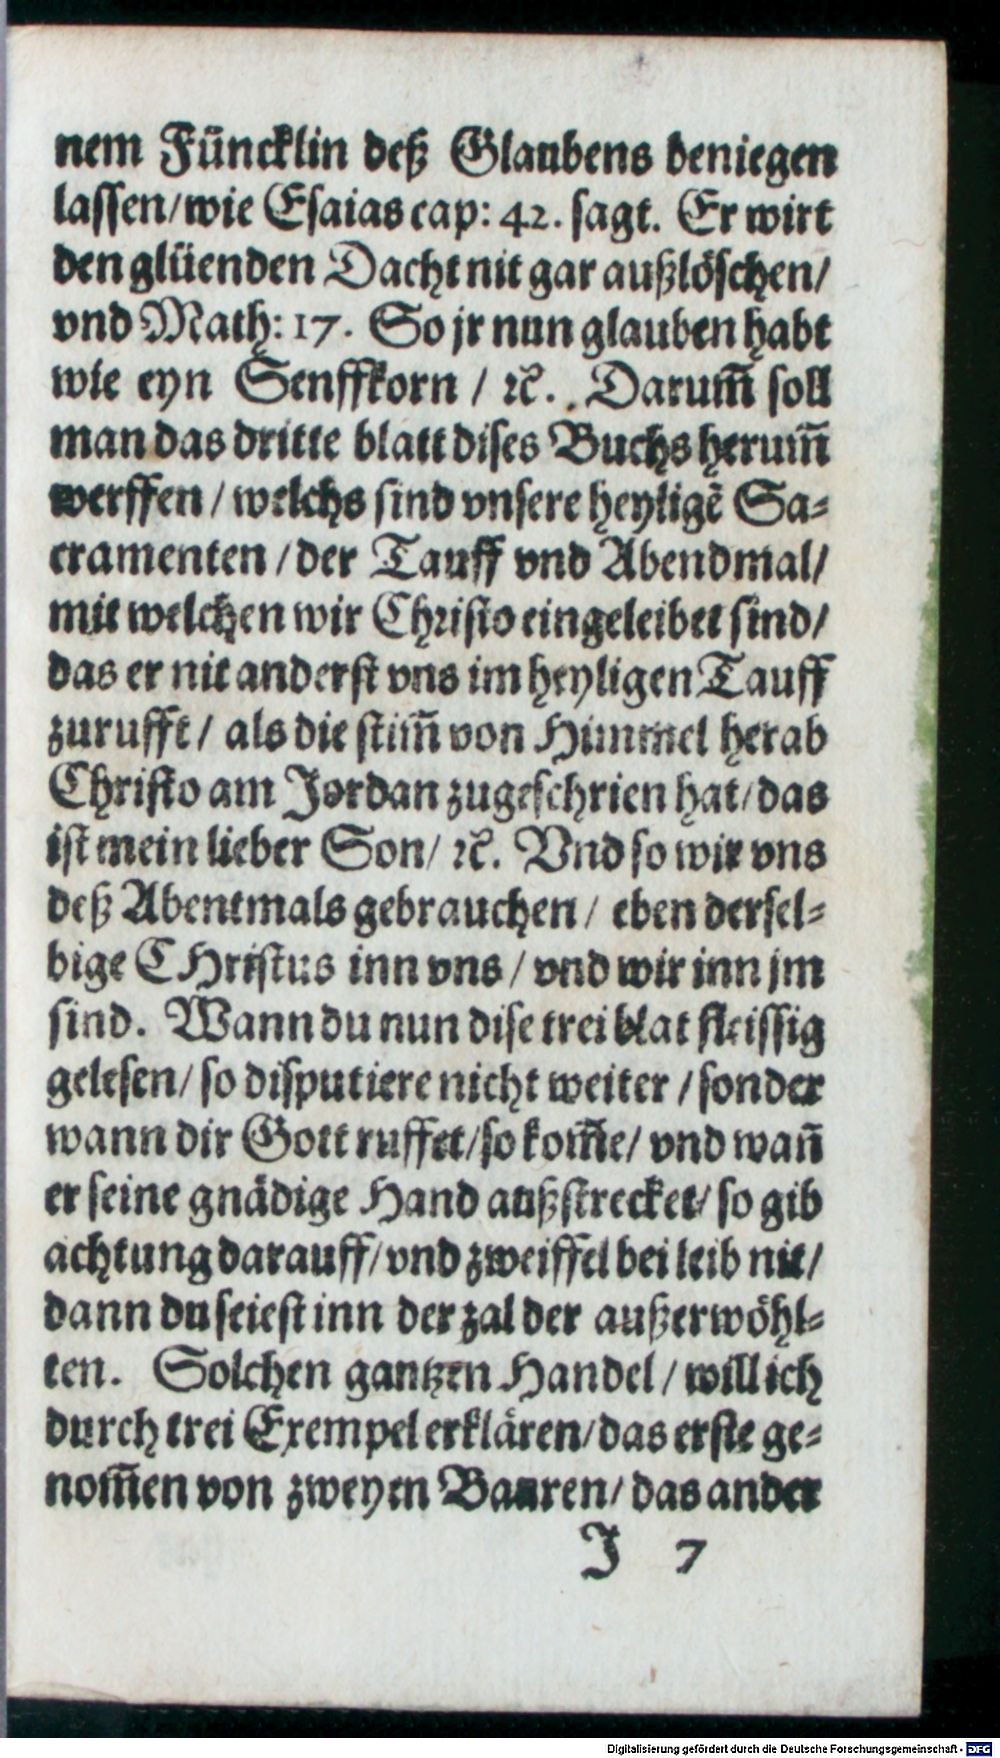 nem Füncklin deß Glaubens beniegen
lassen/wie Esaias cap: 42. sagt. Er wirt
den glüenden Dacht nit gar außlöschen/
vnd Math: 17. So jr nun glauben habt
wie eyn Senffkorn / ꝛc̃. Darum̃ soll
man das dritte blatt dises Buchs herum̃
werffen / welchs sind vnsere heyligẽ Sa-
cramenten / der Tauff vnd Abendmal/
mit welchen wir Christo eingeleibet sind/
das er nit anderst vns im heyligen Tauff
zurufft / als die stim̃ von Himmel herab
Christo am Jordan zugeschrien hat/das
ist mein lieber Son/ ꝛc̃. Vnd so wir vns
deß Abentmals gebrauchen / eben dersel-
bige CHristus inn vns / vnd wir inn jm
sind. Wann du nun dise trei blat fleissig
gelesen/ so disputiere nicht weiter / sonder
wann dir Gott ruffet/so kom̃e/ vnd wañ
er seine gnädige Hand außstrecket/ so gib
achtung darauff/vnd zweiffel bei leib nit/
dann du seiest inn der zal der außerwöhl-
ten. Solchen gantzen Handel / will ich
durch trei Exempel erklären/das erste ge-
nom̃en von zweyen Bauren/ das ander
J 7
Digitalisierung gefördert durch die Deutsche Forschungsgemeinschaft - DFG